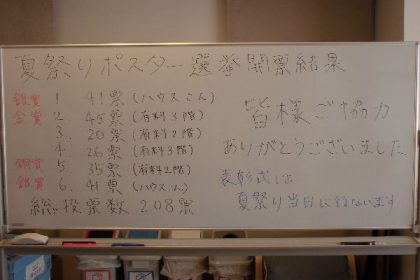 夏祭りポスター選挙開票結果
銀賞 1. 41票 (ハウスこん)
金賞 2. 45票 (有料3階)
3. 20票 (有料2階)
4. 26票 (有料3階)
銅賞 5. 35票 (有料2階)
銀賞 6. 41票 (ハウスこん)
総投票数 208票
皆様ご協力
ありがとうございました
表彰式は
夏祭り当日に行ないます